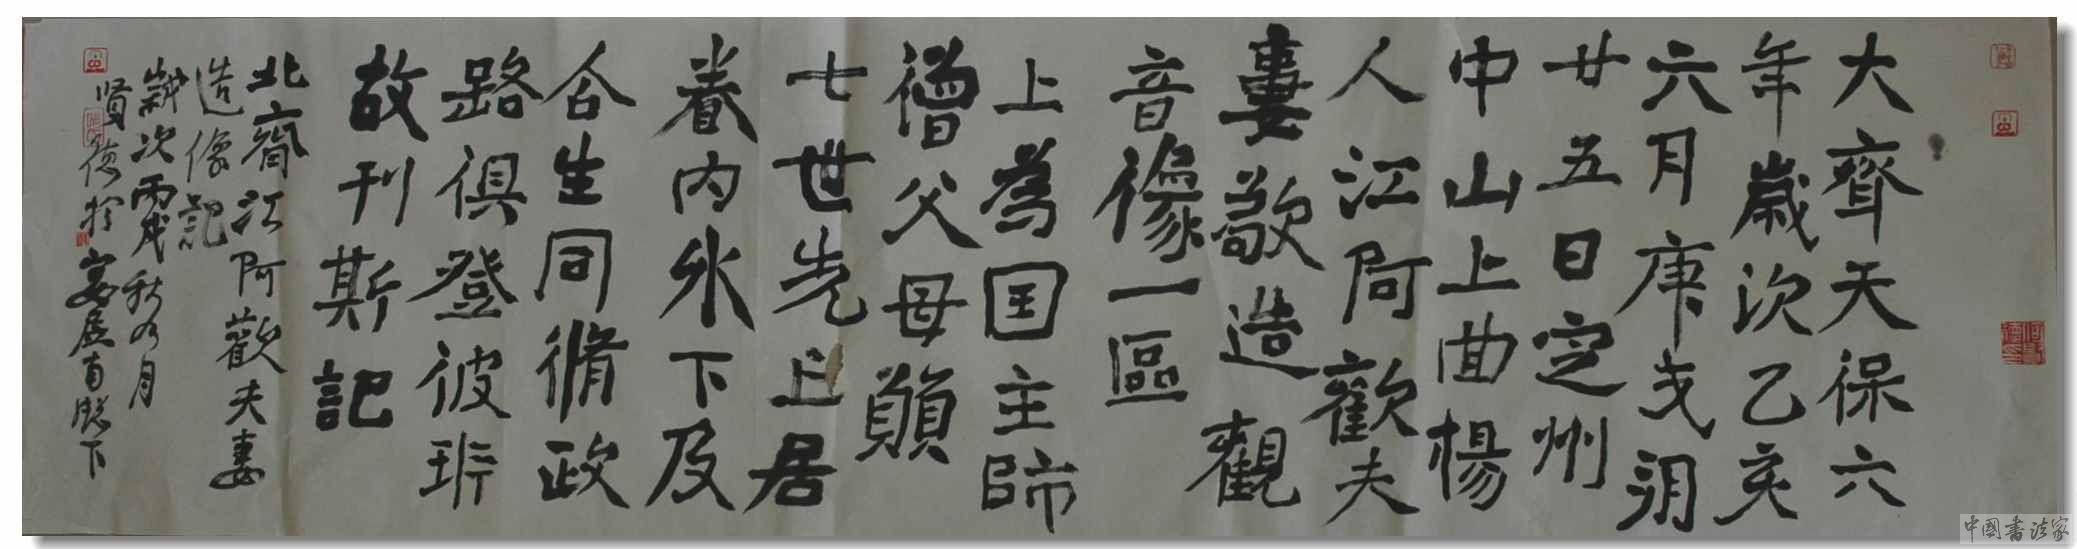 大齊天保六
年歲次乙亥
六月庚戈朔
廿五日定州
中山上曲楊
人江阿歡夫
妻敬造觀
音像一區
上為国主師
僧父母願
七世先亡居
眷内外下及
合生同脩政
路俱登彼
故刊斯記
北齊江阿歡夫妻
造像記
歲次丙戌秋九月
賢德於 居南牕下
中國書法家